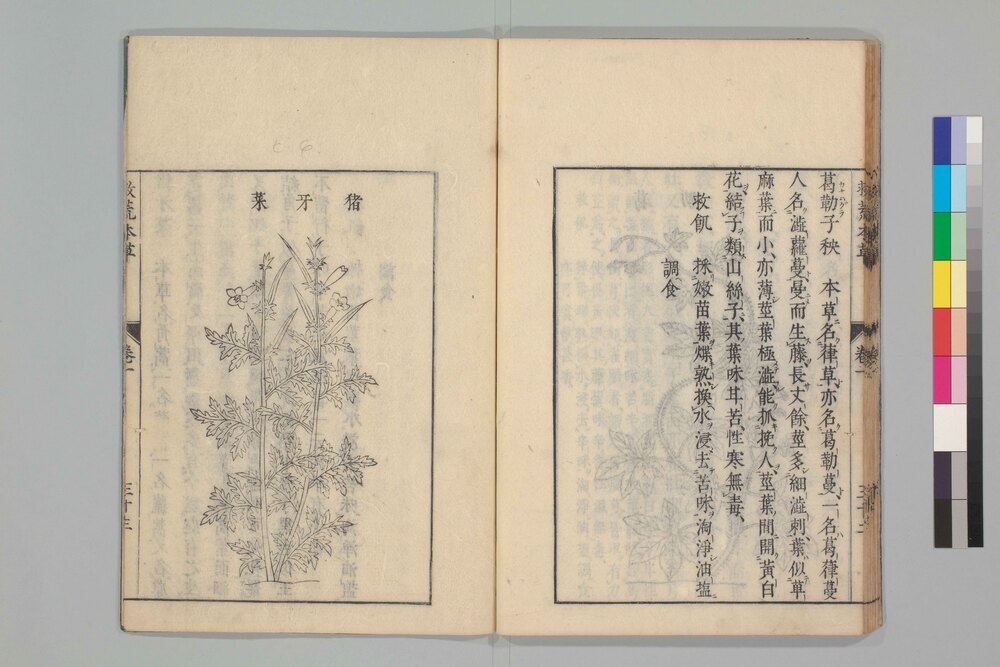 葛勒子秧 本草名葎草亦名葛勒蔓一名葛葎蔓
人名澁蘿蔓蔓而生藤長丈餘莖多細澁刺葉似草
麻葉而小亦薄莖葉極澁能抓挽人莖葉間開黃白
花結子類山絲子其葉味甘苦性寒無毒
救飢 採嫩苗葉煠熟換水浸去苦味淘淨油塩
調食
救荒本草 卷一 三十二
猪牙菜
救荒本草 卷一 三十三